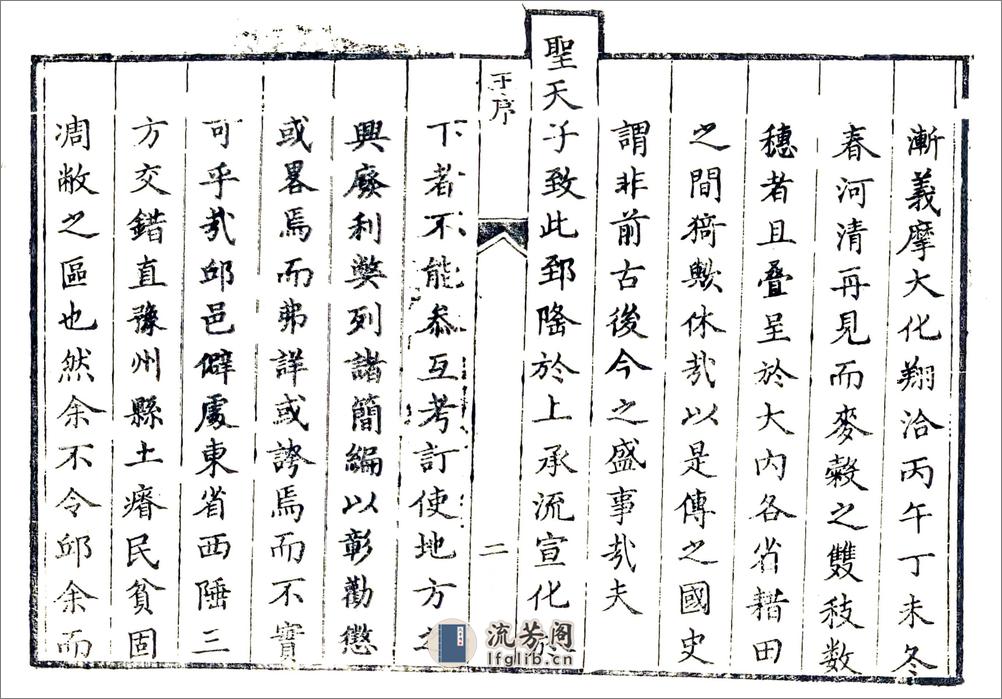 漸義摩大化翔洽丙午丁未冬
春河清再見而麥穀之雙秓數
穗者且叠呈於大內各省耤田
之間猗歟休㢤以是傳之國史
謂非前古後今之盛事㢤夫
聖天子致此郅隆於上承流宣化於
序
二
下者不能叅互考訂使地方之
興廢利獘列諸簡編以彰勸懲
或畧焉而弗詳或誇焉而不實
可乎㢤邱邑僻處東省西陲三
方交錯直豫州縣土瘠民貧固
凋敝之區也然余不令邱余而
流芳阁
lfglib.cn